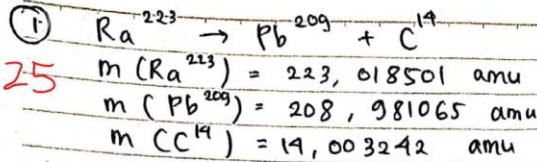 ① Ra²²³ → Pb²⁰⁹ + C¹⁴
25 m (Ra²²³) = 223, 018501 amu
m (Pb²⁰⁹) = 208, 981065 amu
m (C¹⁴) = 14, 003242 amu